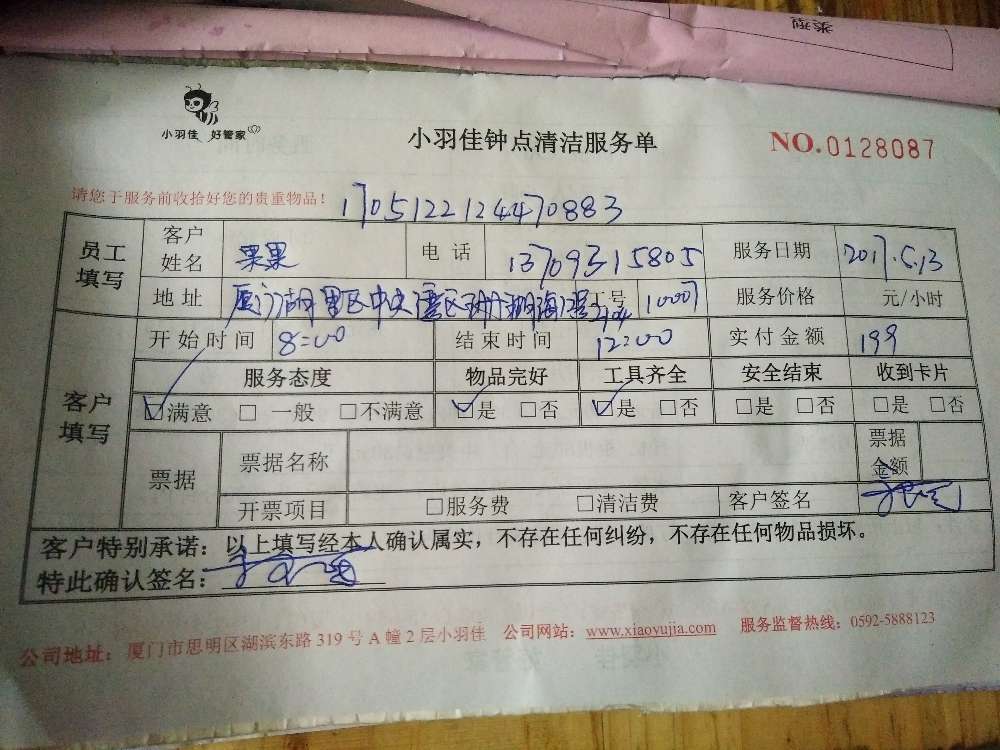 类型
小羽佳 好管家
小羽佳钟点清洁服务单
NO.0128087
请您于服务前收拾好您的贵重物品！
1705122124470883
员工填写 客户姓名 果果 电话 13709315805 服务日期 2017.5.13
地址 厦门湖里区中央湾区 工号 10007 服务价格 元/小时
客户填写 开始时间 8:00 结束时间 12:00 实付金额 199
服务态度 物品完好 工具齐全 安全结束 收到卡片
☑满意 □一般 □不满意 ☑是 □否 ☑是 □否 □是 □否 □是 □否
票据 票据名称 票据金额
开票项目 □服务费 □清洁费 客户签名
客户特别承诺：以上填写经本人确认属实，不存在任何纠纷，不存在任何物品损坏。
特此确认签名：
公司地址：厦门市思明区湖滨东路 319 号 A 幢 2 层小羽佳 公司网站：www.xiaoyujia.com 服务监督热线：0592-5888123